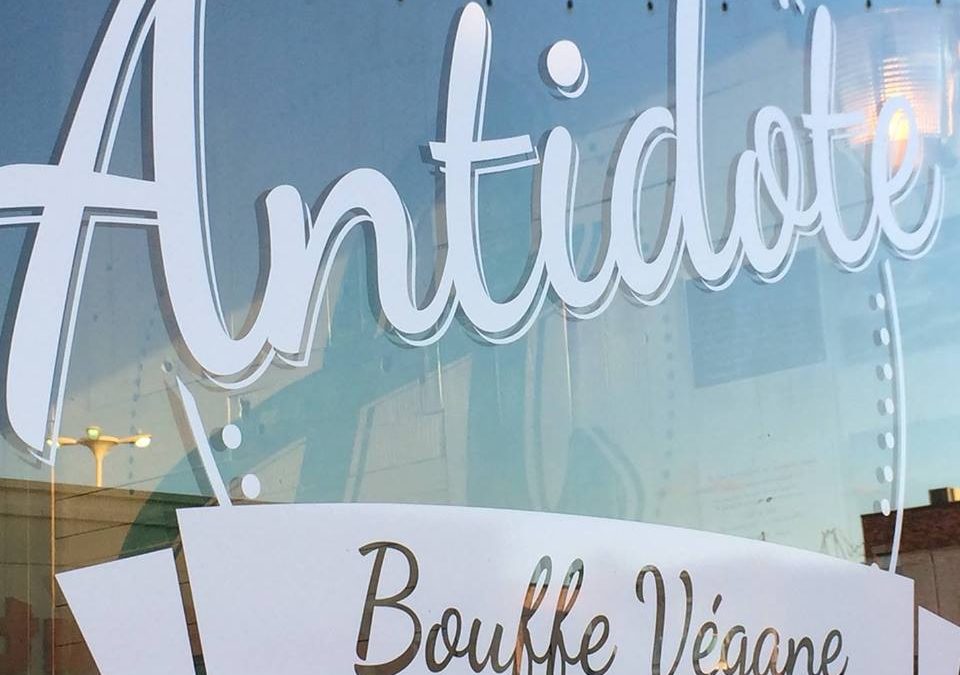 Antidote
Bouffe Végane